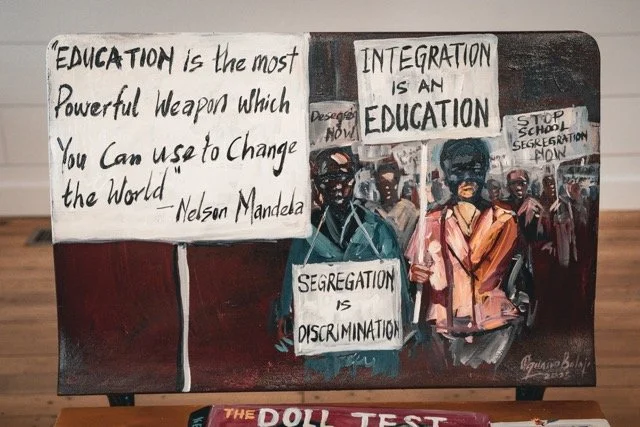 "EDUCATION is the most
Powerful Weapon which
You Can use to Change
the World"
Nelson Mandela
INTEGRATION
IS AN
EDUCATION
NOW
STOP
SCHOOL
SEGREGATION
NOW
SEGREGATION
IS
DISCRIMINATION
THE DOLL TEST